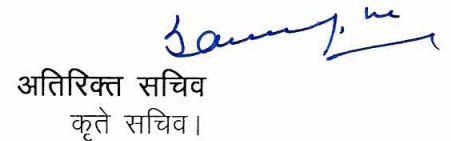 अतिरिक्त सचिव
कृते सचिव।